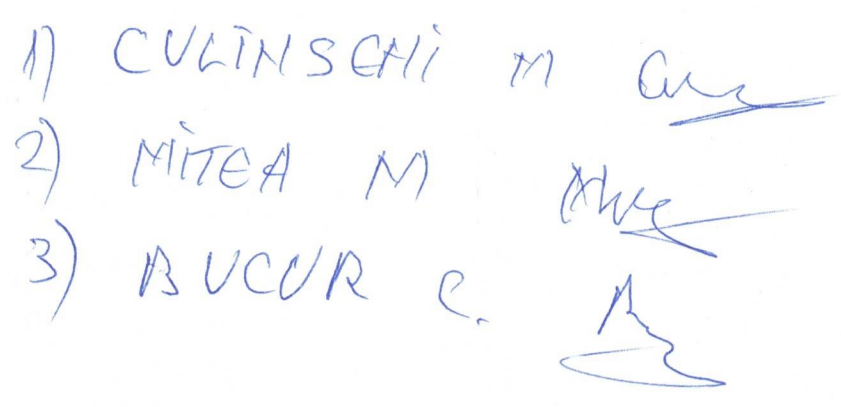 1) CULINSCHI M
2) MITEA M
3) BUCUR C.